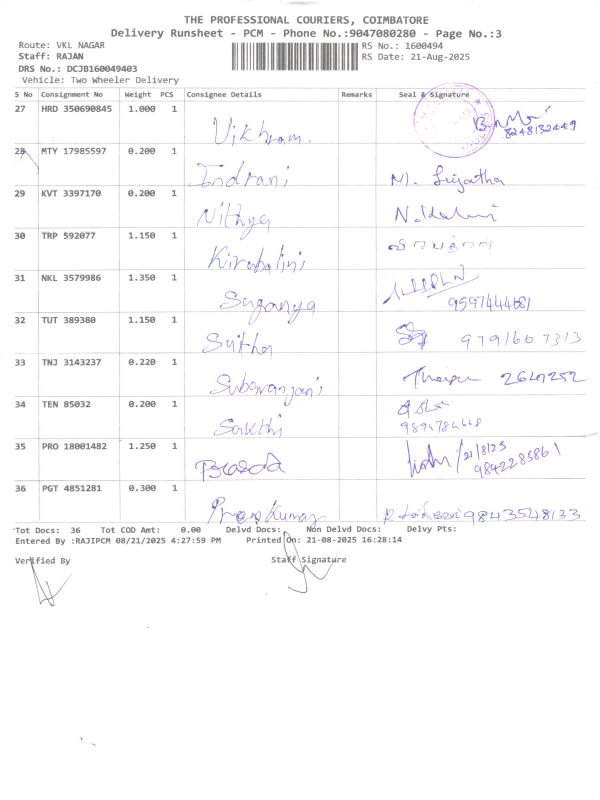 THE PROFESSIONAL COURIERS, COIMBATORE
Delivery Runsheet - PCM - Phone No.:9047080280 - Page No.:3
Route: VKL NAGAR RS No.: 1600494
Staff: RAJAN RS Date: 21-Aug-2025
DRS No.: DCJB160049403
Vehicle: Two Wheeler Delivery
S No Consignment No Weight PCS Consignee Details Remarks Seal & Signature
27 HRD 350690845 1.000 1 Vikhram 8248132449
28 MTY 17985597 0.200 1 Indrani
29 KVT 3397170 0.200 1 Nithya
30 TRP 592077 1.150 1
31 NKL 3579986 1.350 1 Suganya
32 TUT 389380 1.150 1 9791607313
33 TNJ 3143237 0.220 1
34 TEN 85032 0.200 1 Sakthi
35 PRO 18001482 1.250 1 21/8/25 9842285861
36 PGT 4851281 0.300 1 9843548133
Tot Docs: 36 Tot COD Amt: 0.00 Delvd Docs: Non Delvd Docs: Delvy Pts:
Entered By :RAJIPCM 08/21/2025 4:27:59 PM Printed On: 21-08-2025 16:28:14
Verified By Staff Signature